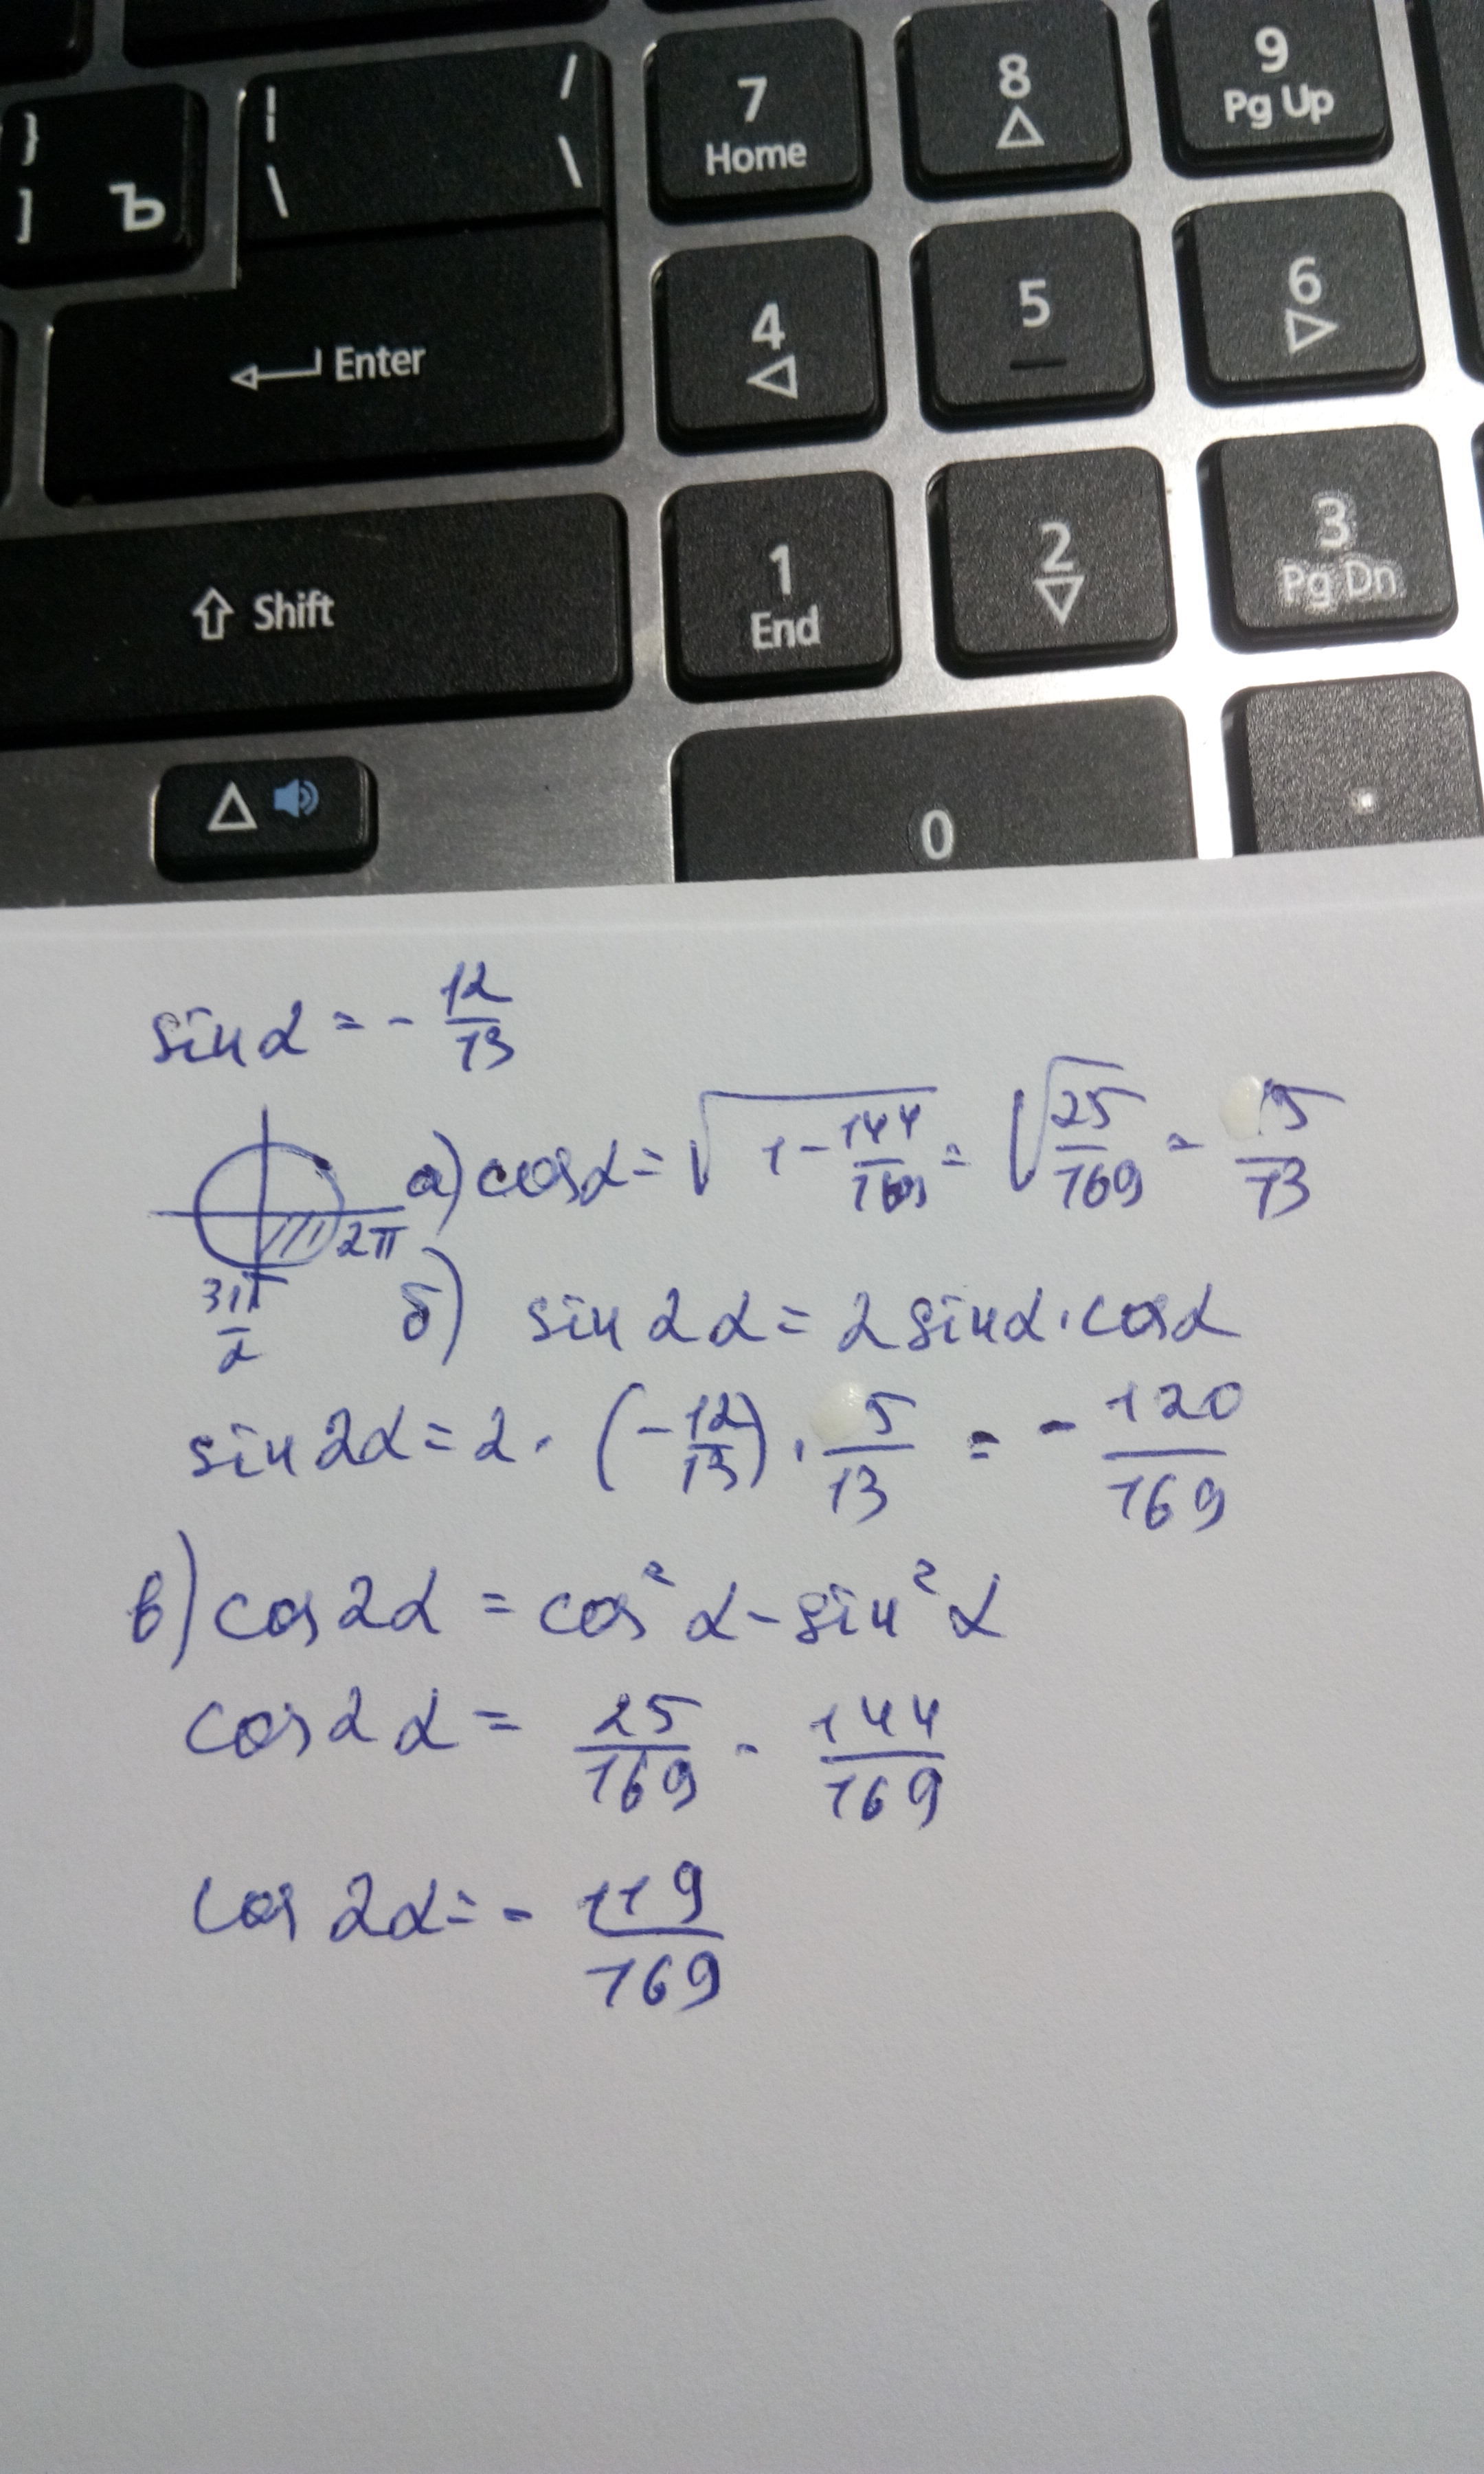 7 Home
8
9 Pg Up
}
] Ъ
| /
\ \
Enter
4
5
6
Shift
1 End
2
3 Pg Dn
0
.
sin α = - 12/13
а) cos α = √(1 - 144/169) = √(25/169) = 5/13
2π
3π/2
б) sin 2α = 2 sin α · cos α
sin 2α = 2 · (-12/13) · 5/13 = - 120/169
в) cos 2α = cos² α - sin² α
cos 2α = 25/169 - 144/169
cos 2α = - 119/169